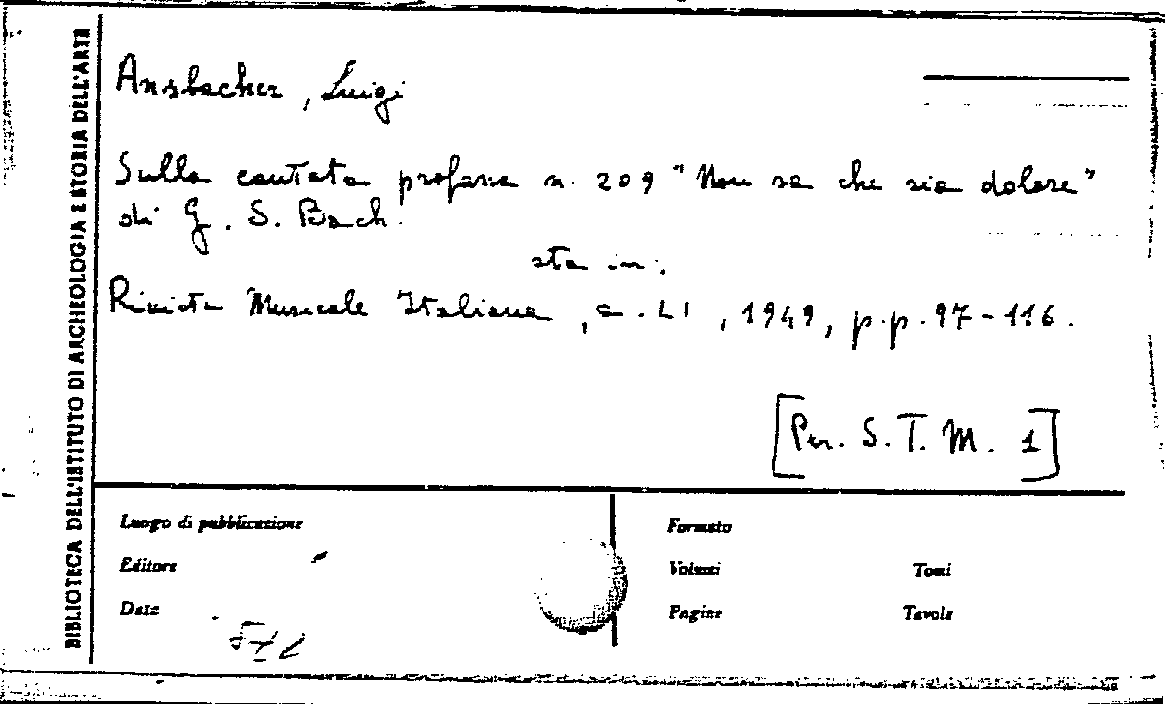 BIBLIOTECA DELL'ISTITUTO DI ARCHEOLOGIA E STORIA DELL'ARTE
Ansbacher, Luigi
Sulla cantata profana n. 209 "Non sa che sia dolore"
di G. S. Bach.
sta in:
Rivista Musicale Italiana, a. LI, 1949, p.p. 97-116.
[Per. S. T. M. 1]
Luogo di pubblicazione
Editore
Data
Formato
Volumi Tomi
Pagine Tavole